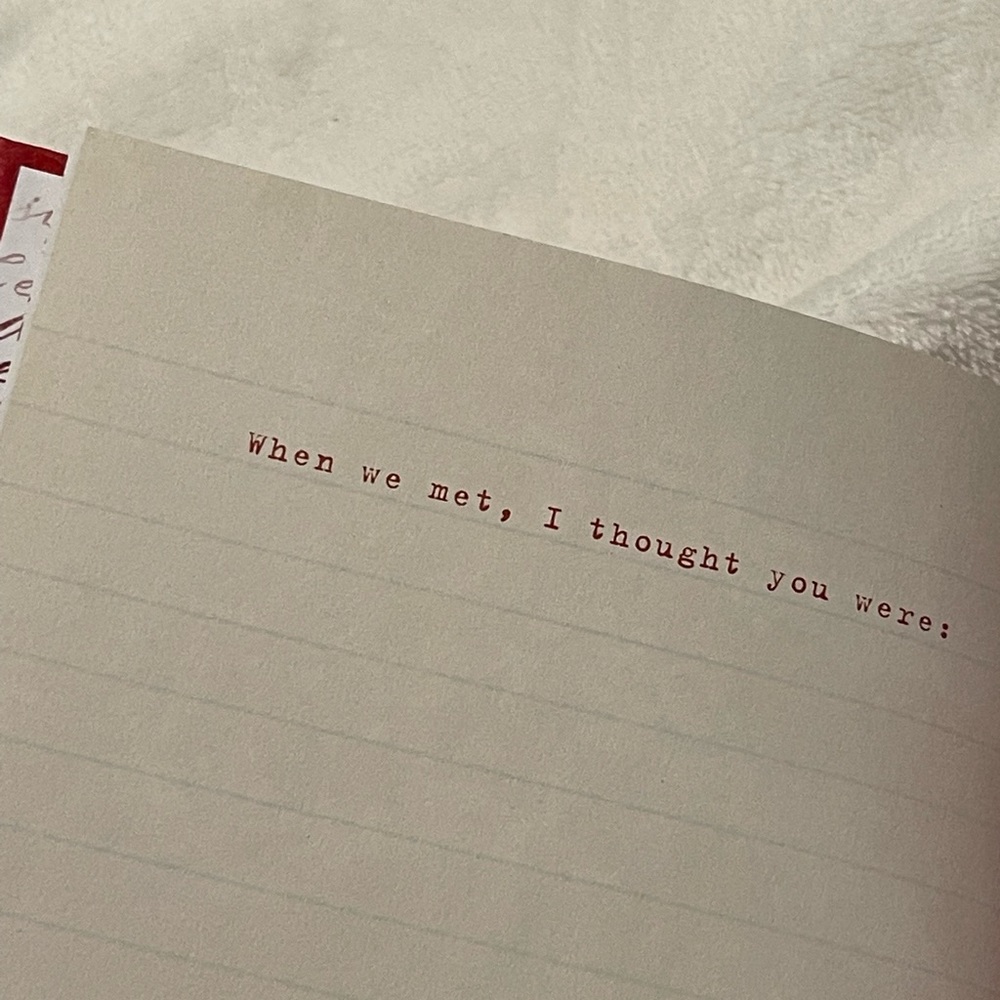 When we met, I thought you were: